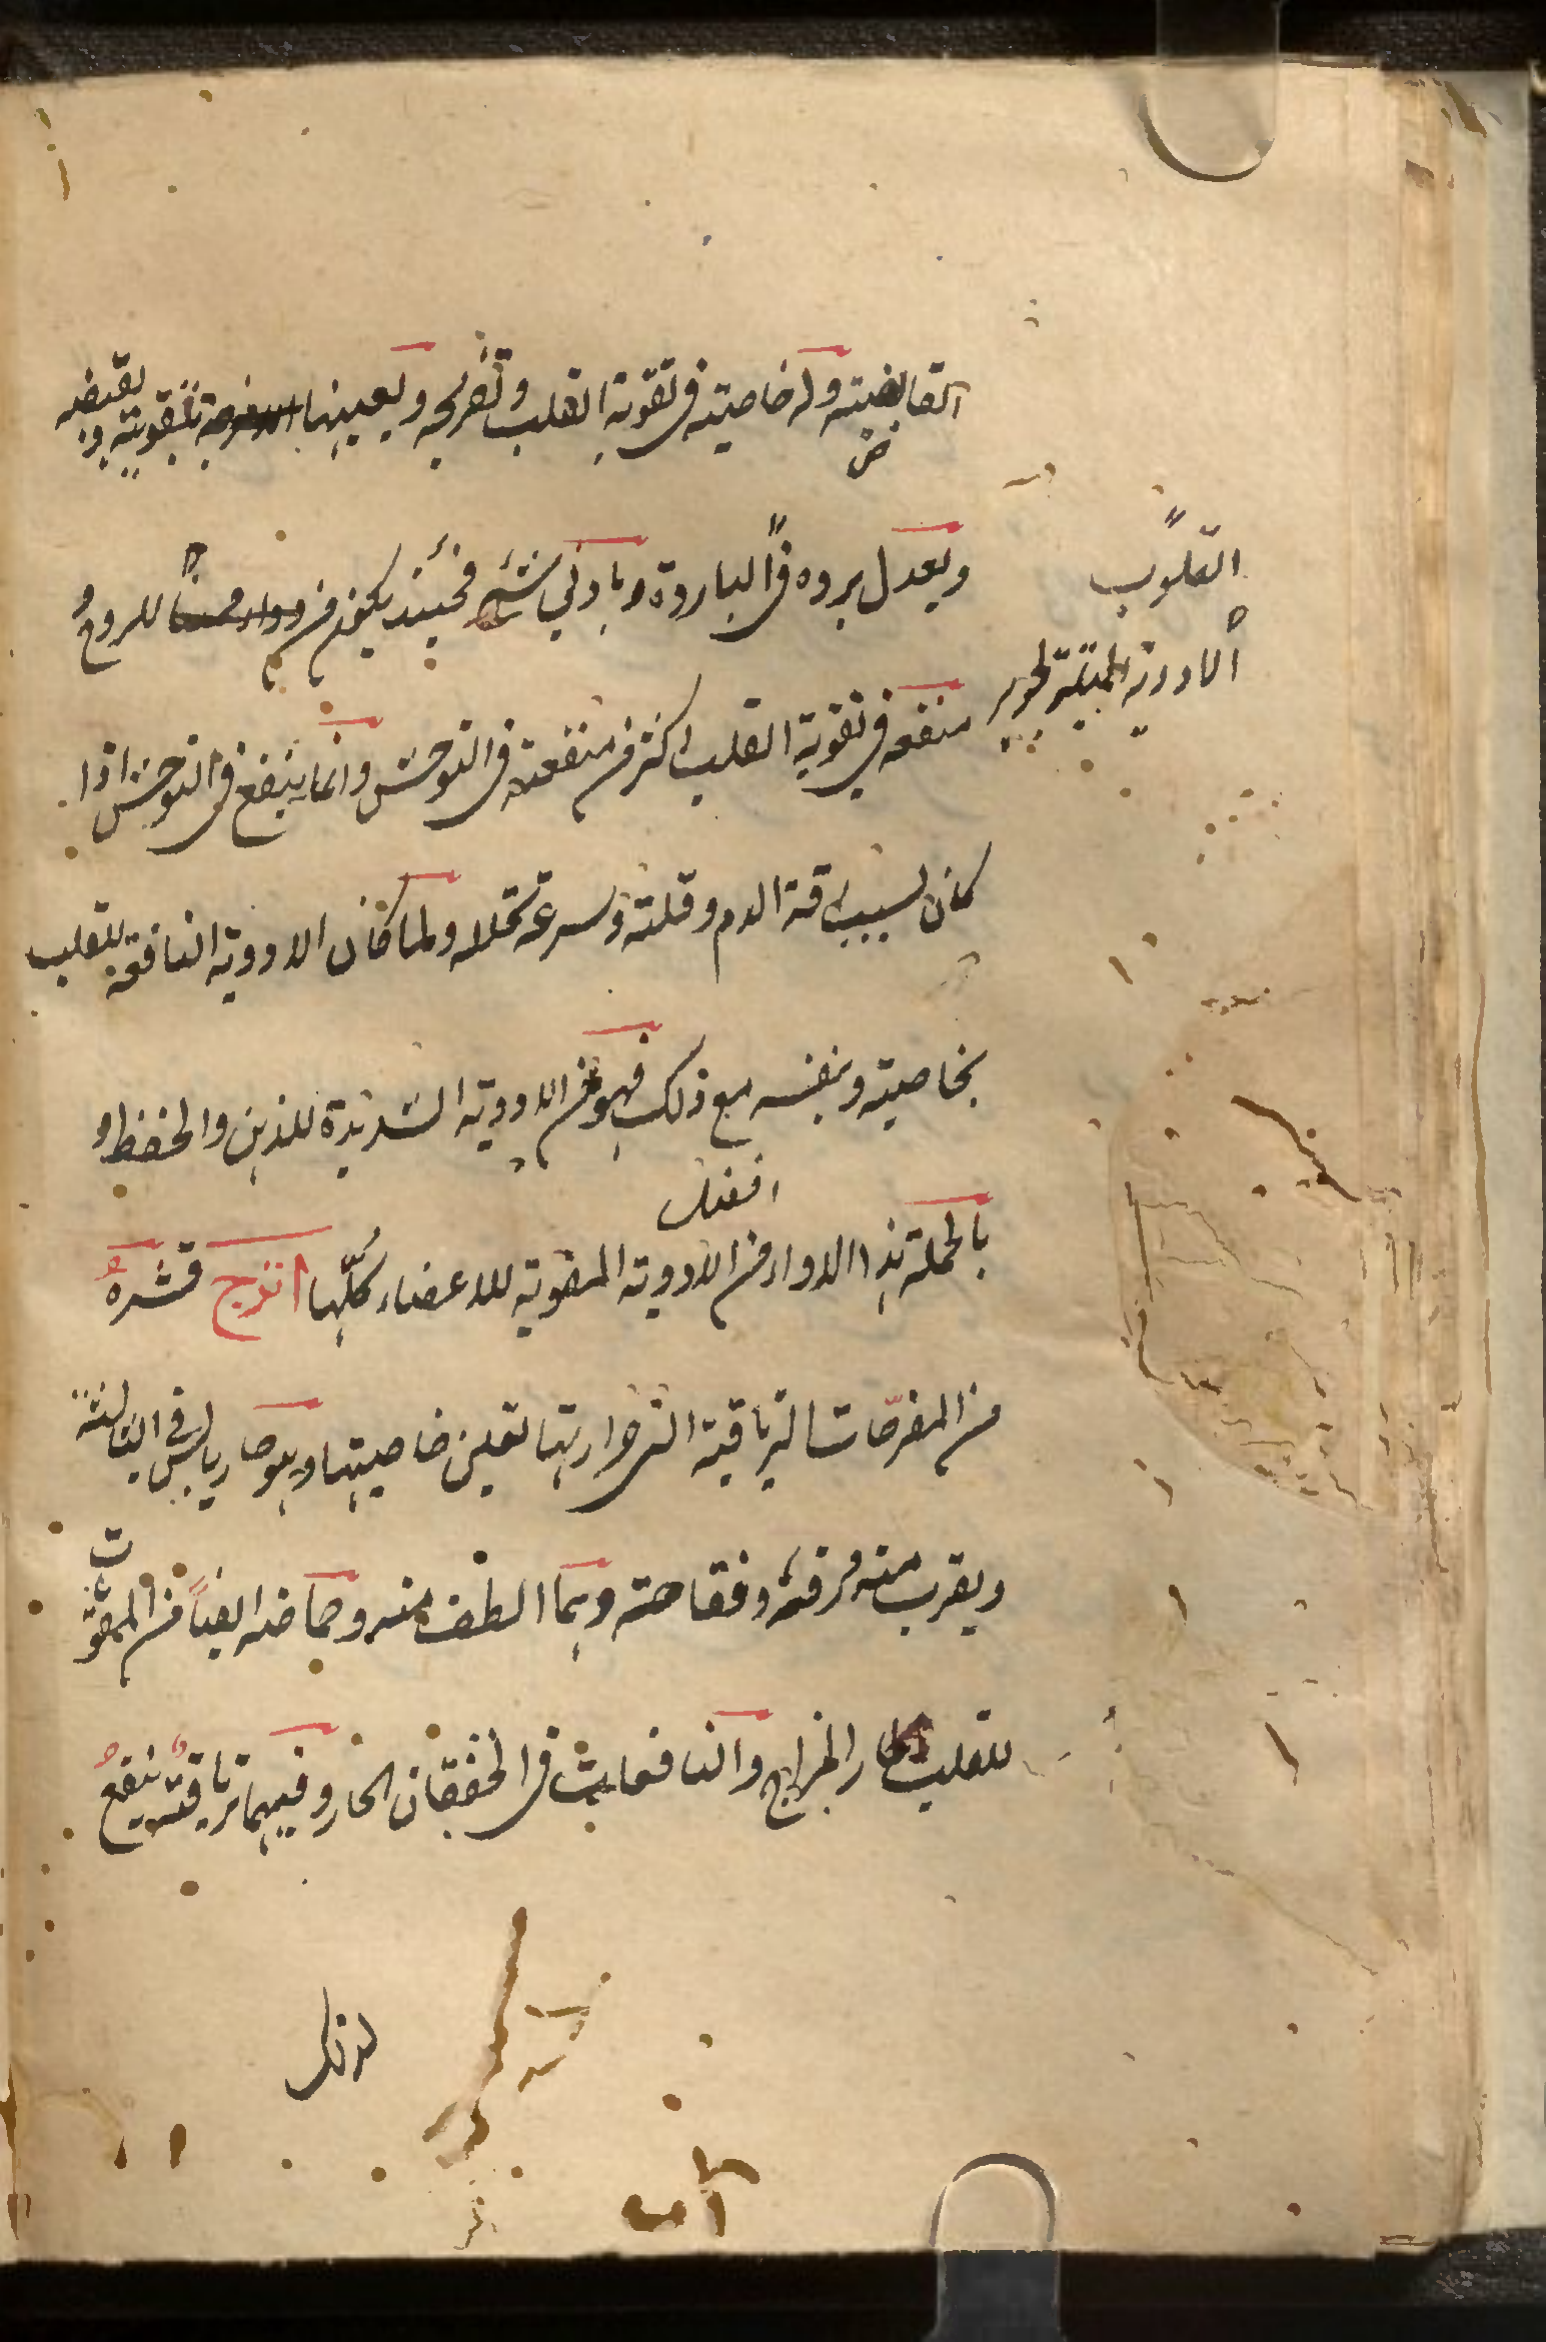 القابضيته وله خاصيته فى تقوية القلب وتفريحه ويعينها بتقويته و بقبضه
ض
ويعدل برده فى الباردة وبادنى شئ فحينئذ يكون من للروح و
القلوب
الادوية الحرير
منفعه فى تقوية القلب اكثر من منفعته فى التوحش وانما ينفع فى التوحش اذا
كان لسبب رقة الدم وقلته و سرعة تحلله ولما كان الادوية النافعة للقلب
بخاصيته وبنفسه مع ذلك فهو من الادوية الشديدة للذهن والحفظ و
افضل
بالجملة هذا الدواء من الادوية المقوية للاعضاء كلّها اترج قشره
من المفرحات الترياقية التى حرارتها تعين خاصيتها وهو حار يابس فى الثالثة
ويقرب منه ورقه وفقاحته وهما الطف منه وحماضه ايضاً من المقويّات
للقلب الحار المزاج والنافعات فى الخفقان الحار وفيهما ترياقية ينفع
لدفك